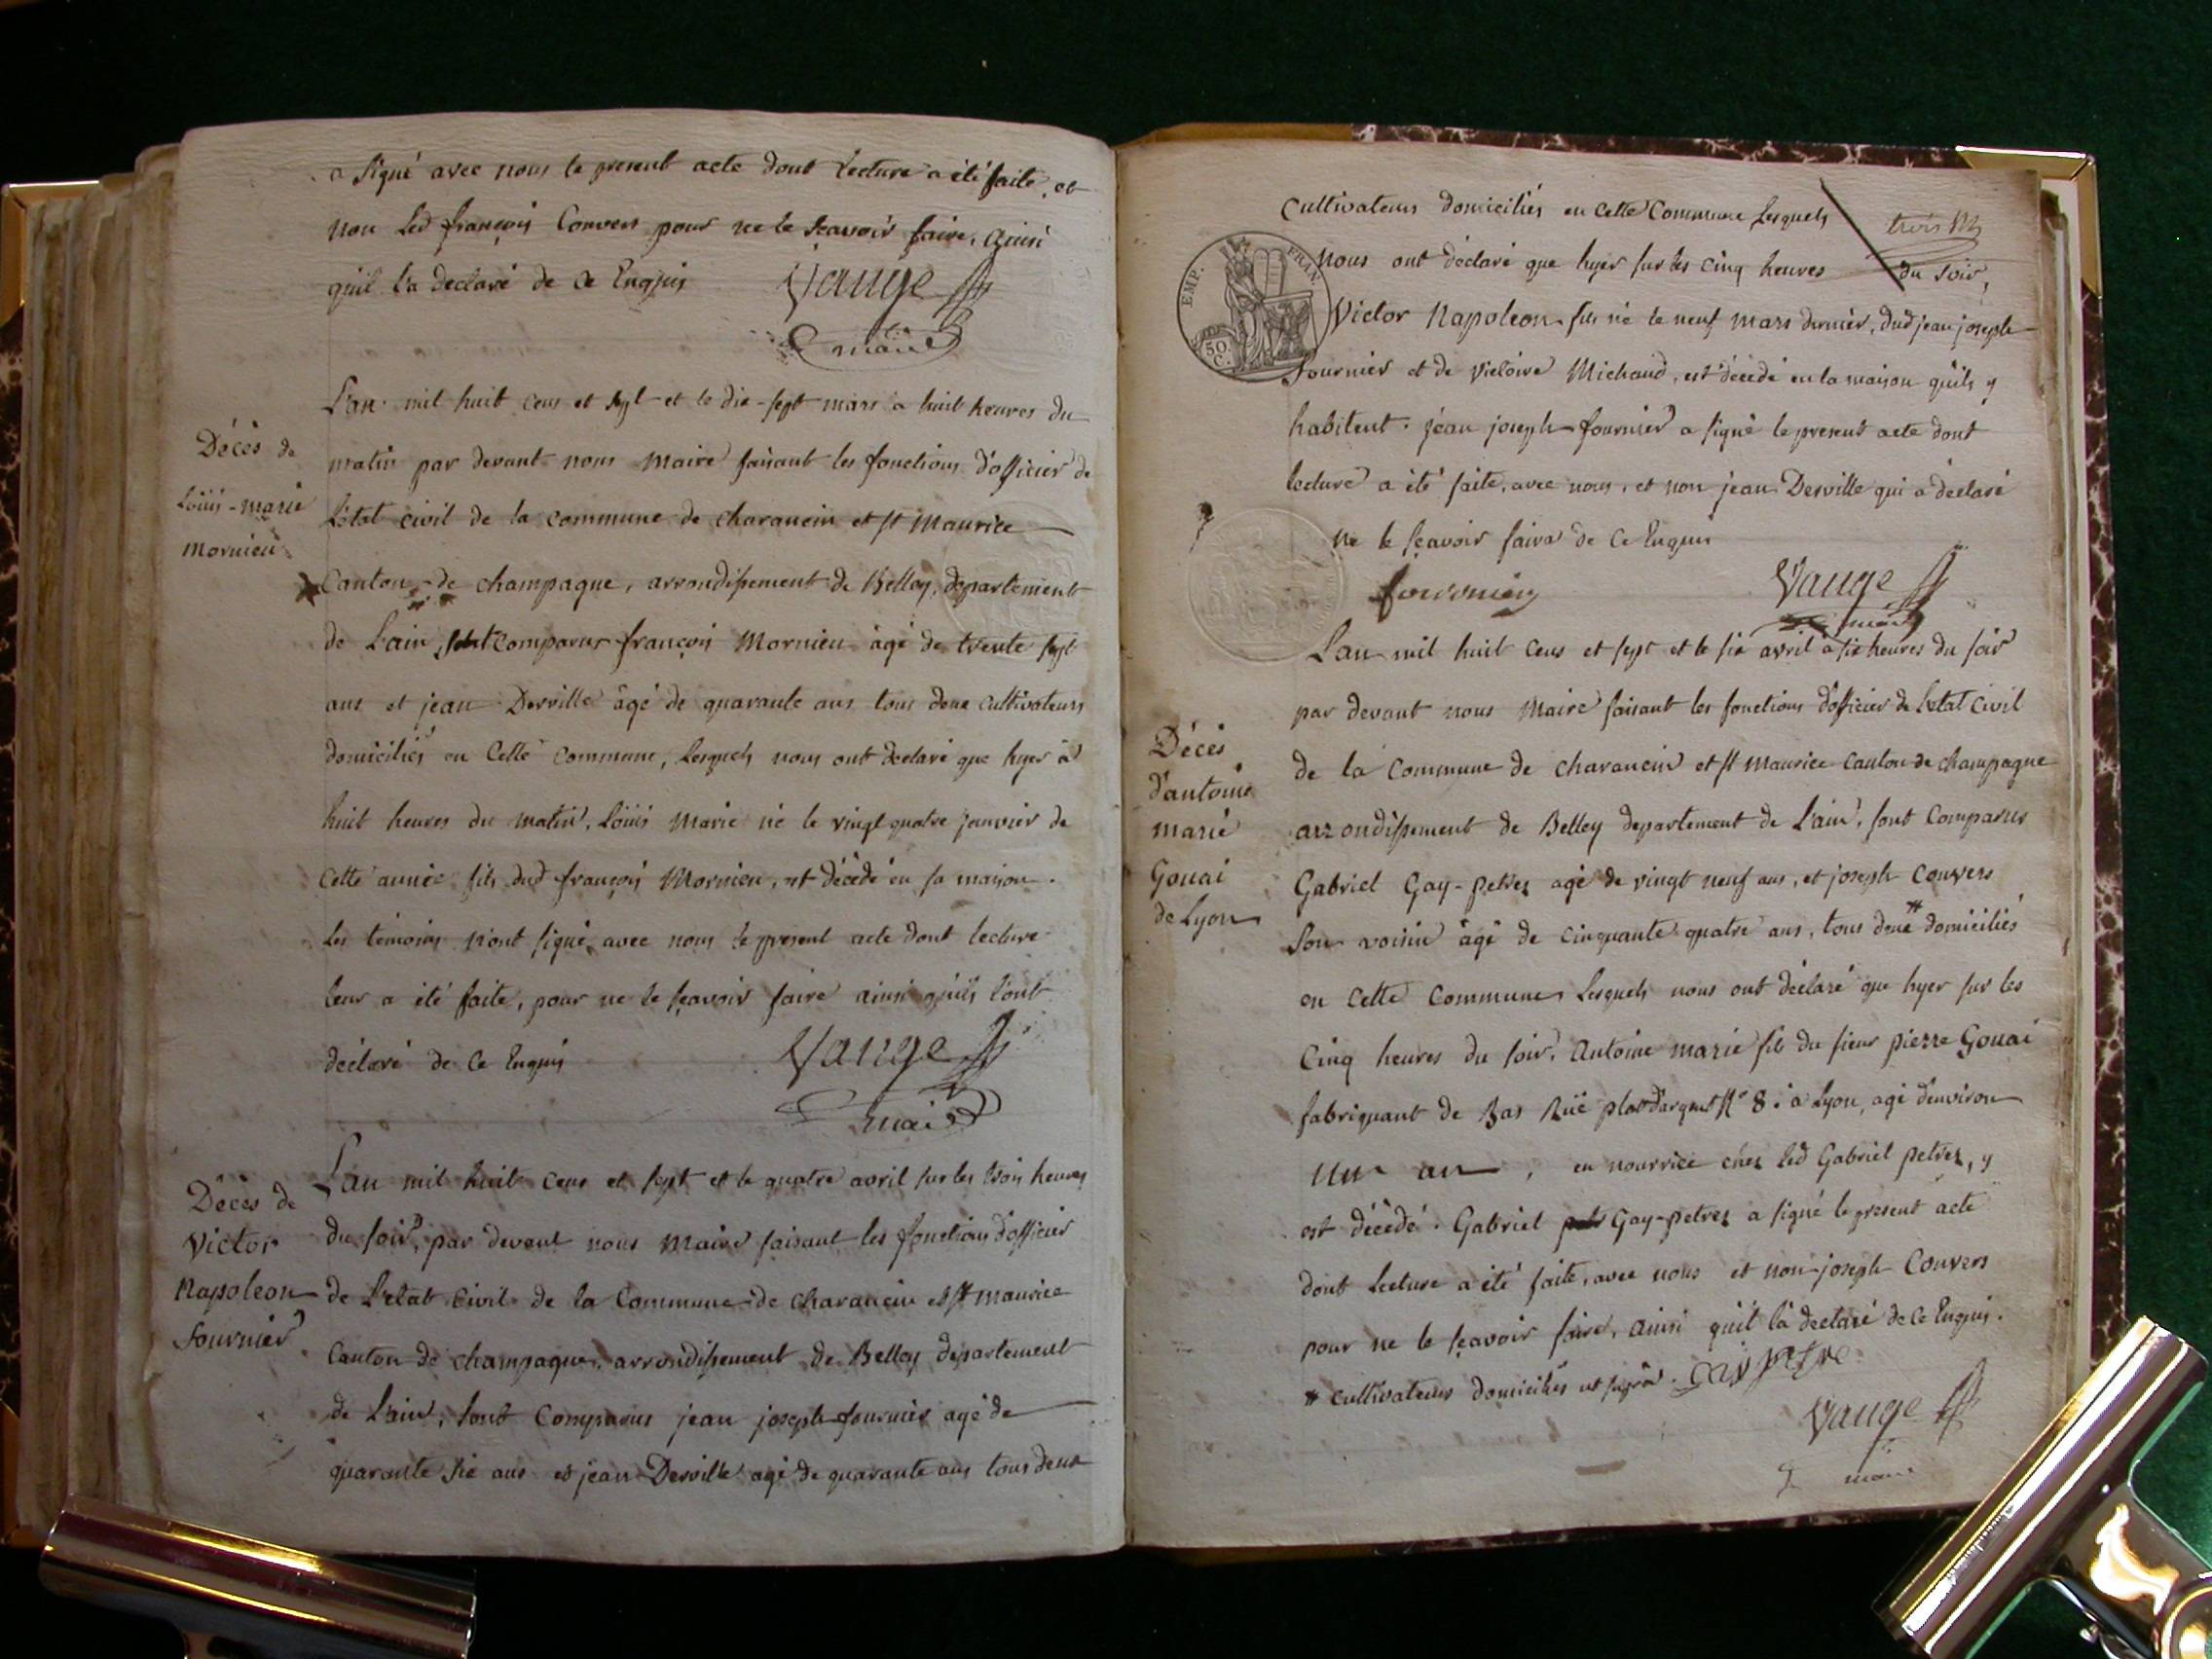 a signé avec nous le present acte dont Lecture a été faite, et
non led françois Convers pour ne le sçavoir faire, ainsi
quil l'a declaré de ce Enquis Vauge
maire
Décès de
Loüis-marie
Mornieu
L'an mil huit cens et sept et le dix-sept mars a huit heures du
matin par devant nous Maire faisant les fonctions d'officier de
L'état civil de la commune de charancin et st Maurice
Canton de champagne, arrondissement de Belley, departement
de L'ain, sont Comparus françois Mornieu agé de trente sept
ans et jean Derville âgé de quarante ans tous deux cultivateurs
domiciliés en Cette Commune, Lesquels nous ont declaré que hyer à
huit heures du matin, Loüis Marie né le vingt quatre janvier de
Cette année fils dud françois Mornieu, est décédé en sa maison.
Les temoins n'ont signé avec nous le present acte dont lecture
leur a été faite, pour ne le sçavoir faire ainsi quils l'ont
déclaré de Ce Enquis Vauge
maire
Décès de
Victor
Napoleon
fournier
L'an mil huit cens et sept et le quatre avril sur les trois heures
du soir, par devant nous Maire faisant les fonctions d'officier
de L'etat Civil de la Commune de charancin et st maurice
Canton de champagne, arrondissement de Belley departement
de L'ain, sont Comparus jean joseph fournier agé de
quarante six ans et jean Derville agé de quarante ans tous deux
trois
Cultivateurs domiciliés en Cette Commune Lesquels
EMP. FRAN.
50 C.
Nous ont déclaré que hyer sur les cinq heures du soir,
Victor Napoleon fils né le neuf mars dernier, dud jean joseph
fournier et de Victoire Michaud, est décédé en la maison quils y
habitent. jean joseph fournier a signé le present acte dont
lecture a été faite, avec nous, et non jean Derville qui a déclaré
ne le sçavoir faire de Ce Enquis
fournier Vauge
maire
Décès
d'antoine
marie
Gouai
de Lyon
L'an mil huit cens et sept et le six avril à six heures du soir
par devant nous Maire faisant les fonctions d'officier de L'etat Civil
de la Commune de charancin et st maurice Canton de champagne
arrondissement de Belley departement de L'ain, sont Comparus
Gabriel Gay-petrez agé de vingt neuf ans, et joseph Convers
son voisin âgé de cinquante quatre ans, tous deux # domiciliés
en Cette Commune Lesquels nous ont déclaré que hyer sur les
Cinq heures du soir, Antoine marie fils du sieur pierre Gouai
fabriquant de Bas Rüe plat d'argent N° 8. à Lyon, agé d'environ
Un an, en nourrice chez led Gabriel petrez, y
est décédé. Gabriel Gay-petrez a signé le present acte
dont Lecture a été faite, avec nous et non joseph Convers
pour ne le sçavoir faire, ainsi quil la declaré de Ce Enquis.
# cultivateurs domiciliés ut supra. gay petre
Vauge
maire